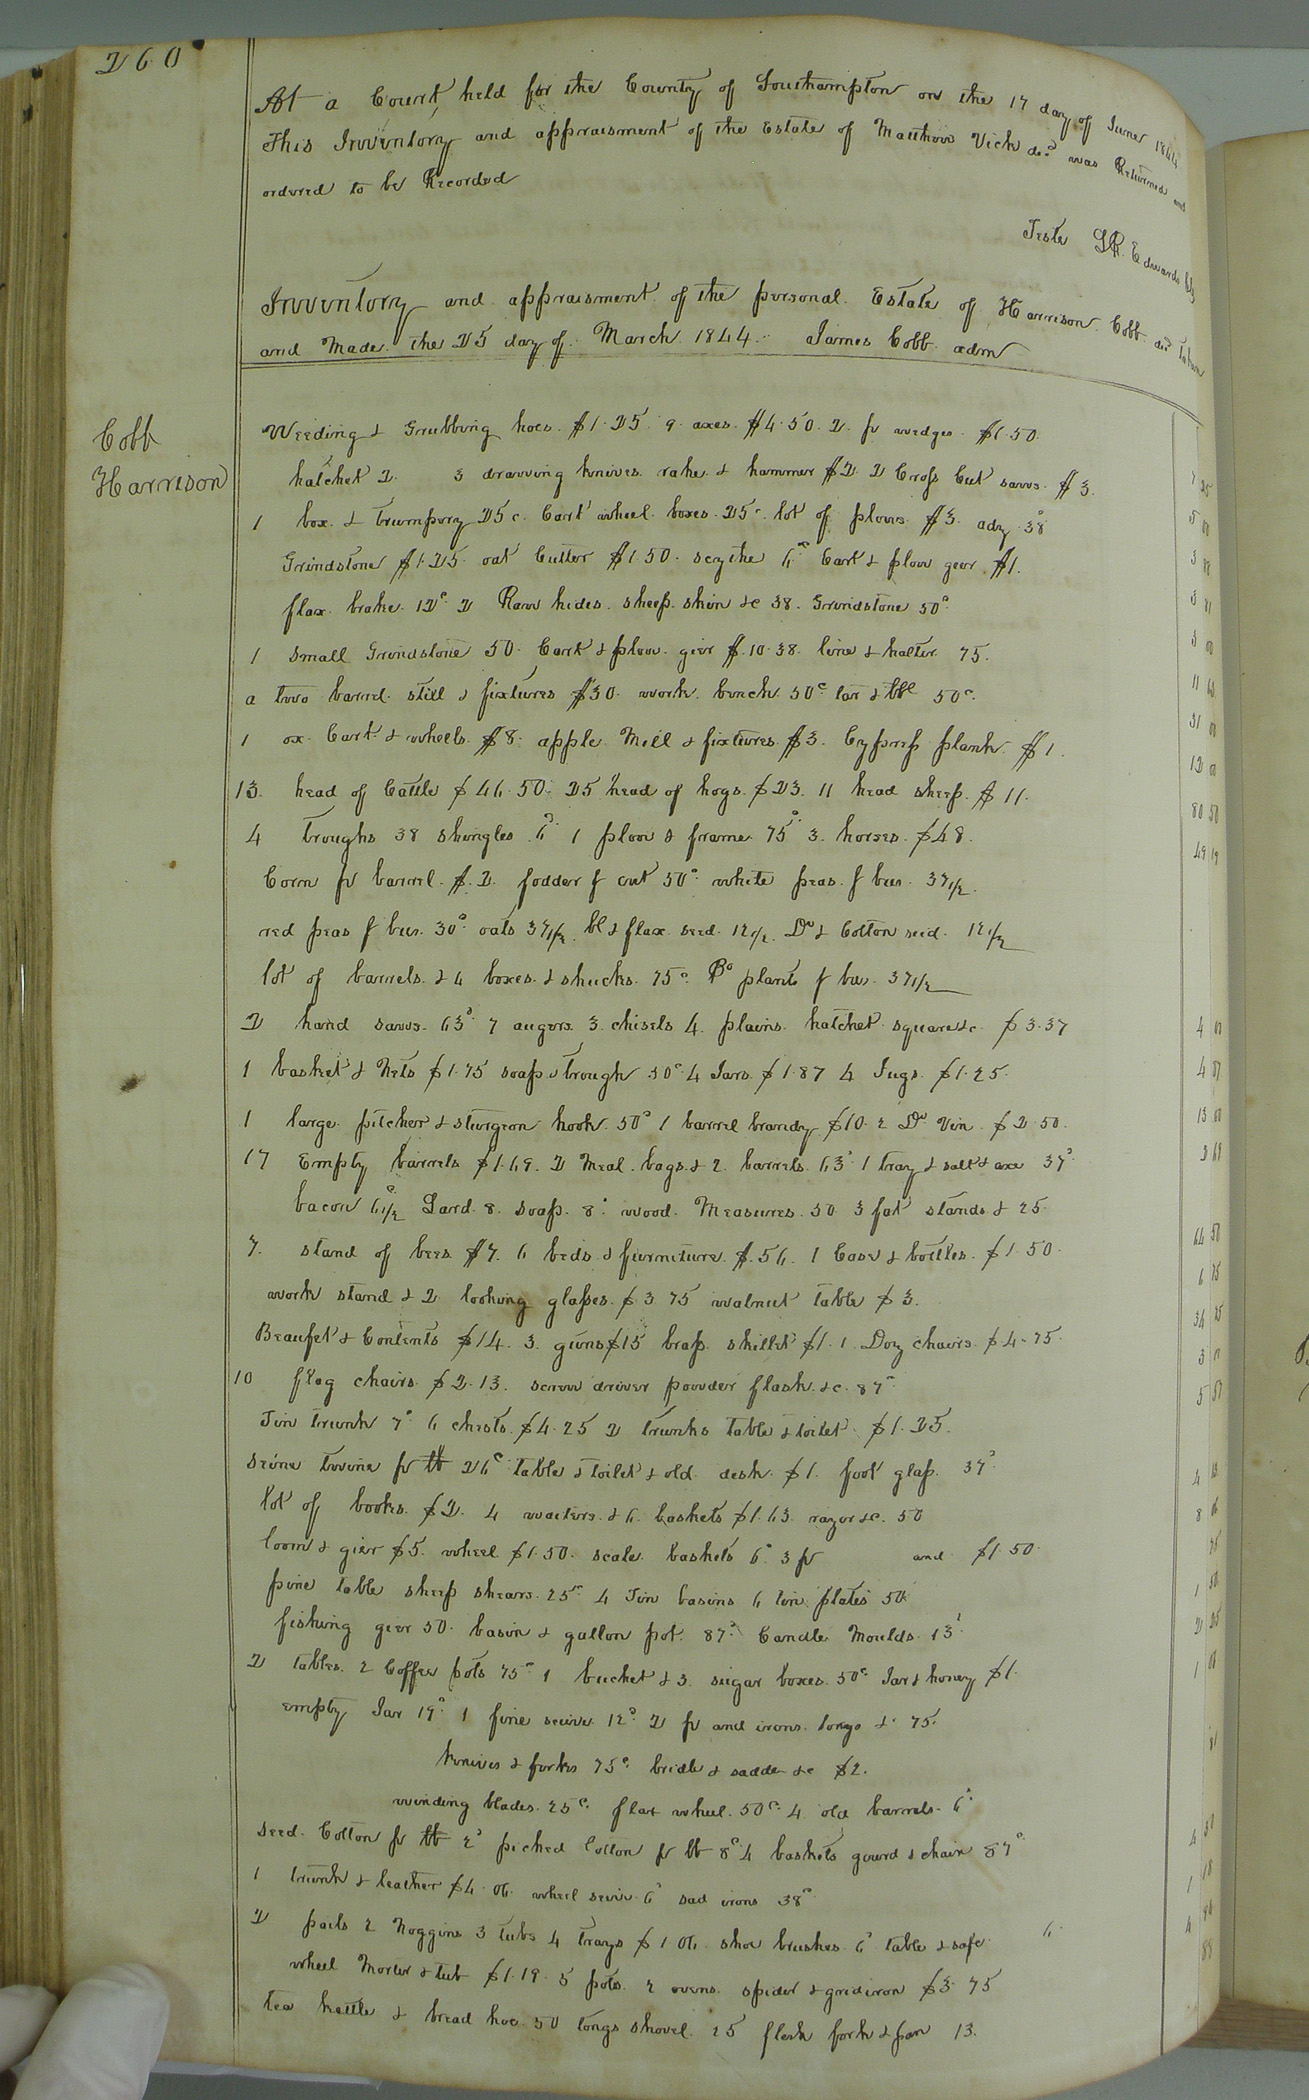 260
At a Court held for the County of Southampton on the 17 day of June 1844
This Inventory and appraisment of the Estate of Matthew Vick decd was Returned and
ordered to be Recorded
Teste LR. Edwards Clk
Inventory and appraisment of the personal Estate of Harrison Cobb decd taken
and Made the 25 day of March 1844. James Cobb adm
Cobb
Harrison
Weeding & Grubbing hoes $1.25 9 axes $4.50. 2 pr wedges $1.50
hatchet 2 3 drawing knives rake & hammer $2 2 Cross Cut saws $3. 7 25
1 box & trumpory 25c. Cart wheel boxes 25c. lot of plows $3. adz 38c 5 00
Grindstone $1.25 oat Cutter $1.50. scythe 6c Cart & plow geer $1. 3 88
flax brake 12c. 2 Raw hides sheep skin &c 38. Grindstone 50c. 3 81
1 small Grindstone 50. Cart & plow gier $10.38 line & halter 75. 3 00
a two barrel still & fixtures $30. work bench 50c. tar & bbl 50c. 11 63
1 ox Cart & wheels $8. apple Mill & fixtures $3. Cypress plank $1. 31 00
13. head of Cattle $46.50. 25 head of hogs $23. 11 head sheep $11. 12 00
4 troughs 38 shingles 6c. 1 plow & frame 75c 3 horses $48. 80 50
Corn pr barrel $.2. fodder p cwt 50c white peas p bus. 37 1/2. 49 19
red peas p bus. 30c oats 37 1/2. bl & flax seed 12 1/2. Do & Cotton seed 12 1/2
lot of barrels & 4 boxes & shucks. 75c. Po plants p bus. 37 1/2
2 hand saws 63c. 7 augers 3 chisels 4 plains hatchet square &c $3.37 4 00
1 basket & Nets $1.75 soap & trough 50c. 4 Jars $1.87 4 Jugs $1.25. 4 87
1 large pitcher & sturgeon hook 50c 1 barrel brandy $10. 2 Do Vin. $2.50. 13 00
17 Empty barrels $1.69. 2 Meal bags & 2 barrels 63c. 1 tray & salt & axe 37c. 2 69
bacon 6 1/2c Lard 8. soap 8c. wood Measures 50 3 fat stands & 25
7. stand of bees $7. 6 beds & furniture $.56. 1 Case & bottles $1.50. 64 50
work stand & 2 looking glasses $3 75 walnut table $3. 6 75
Beaufet & Contents $14. 3 guns $15 brass skillet $1. 1 Doz chairs $4.75. 34 75
10 flag chairs $2.13. screw driver powder flask &c. 87c 3 0
Tin trunk 7c. 6 chests $4.25 2 trunks table & toilet $1.25. 5 57
seine twine pr lb 26c table & toilet & old desk $1. foot glass 37c.
lot of books $2. 4 waiters & 6 baskets $1.63 razor &c. 50 4 13
loom & gier $5. wheel $1.50. scale baskets 6c. 3 pr and $1.50. 8 06
pine table sheep shears 25c. 4 Tin basins 6 tin plates 50.
fishing gier 50. basin & gallon pot 87c. Candle Moulds 13c. 1 50
2 tables 2 Coffee pots 75c. 1 bucket & 3 sugar boxes 50c. Jar & honey $1. 2 25
empty Jar 19c. 1 fine seive 12c. 2 pr and irons tongs &c 75.
knives & forks 75c. bridle & saddle &c $2.
winding blades 25c. flax wheel 50c. 4 old barrels 6c
seed Cotton pr lb 2c picked Cotton pr lb 8c. 4 baskets gourd & chair 87c.
1 trunk & leather $4.06 wheel seive 6c sad irons 38c.
2 pails 2 Noggins 3 tubs 4 trays $1.06 shoe brushes 6c table & safe 6.
wheel Morter & tub $1.19. 5 pots 2 ovens spider & gridiron $3.75
tea kettle & bread hoe 50 tongs shovel 25 flesh fork & pan 13.